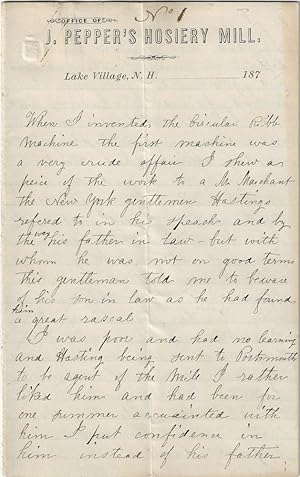 No 1
OFFICE OF
J. PEPPER'S HOSIERY MILL.
Lake Village, N. H. 187
When I invented the Circular Ribb
Machine the first mashine was
a very crude affair I shew a
peice of the work to a Mr Marchant
the New York gentlemen Hastings
refered to in his speach and by
the way his father in law - but with
whom he was not on good terms
This gentleman told me to beware
of his son in law as he had found
him a great rascal
I was poor and had no learning
and Hasting being sent to Portsmouth
to be agent of the Mill I rather
liked him and had been for
one summer accuainted with
him I put confidence in
him instead of his father